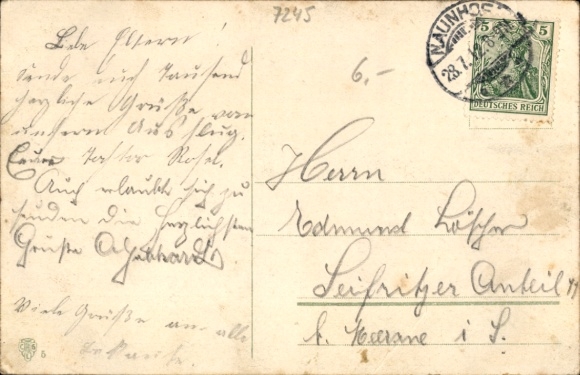 7245
6.-
NAUNHOF
28.7.
5 5
DEUTSCHES REICH
Liebe Eltern!
sende euch Tausend
herzliche Grüße von
unserm Ausflug.
Eure Rosel.
Auch erlaubt sich zu
senden die herzlichsten
Grüße
Viele Grüße an alle
Herrn
Edmund Löscher
Seifritzer Anteil
b. Meerane i S.